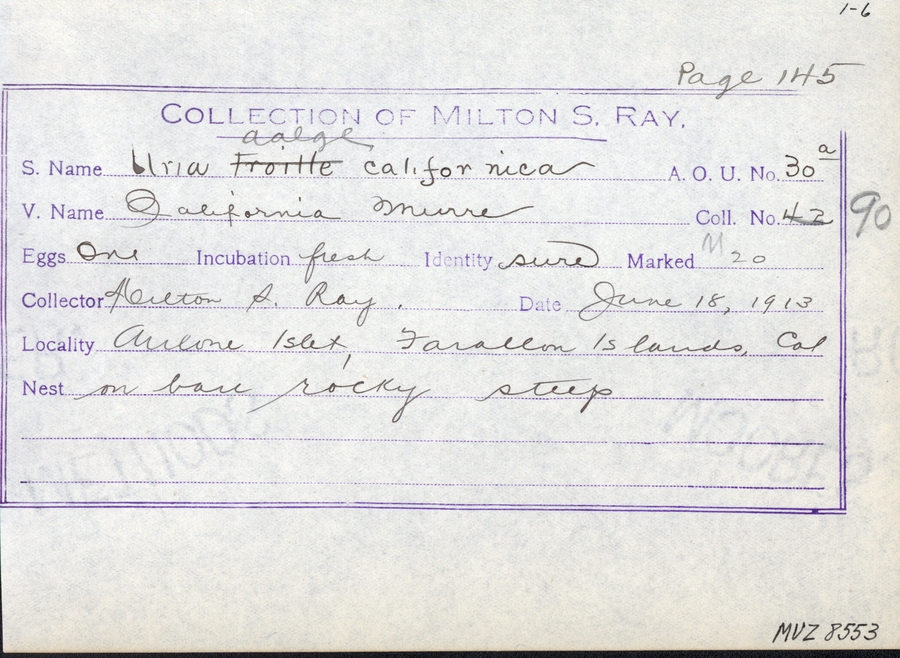 1-6
Page 145
COLLECTION OF MILTON S. RAY.
aalge
S. Name Uria Troille californica A. O. U. No. 30a
V. Name California Murre Coll. No. 42 90
Eggs One Incubation fresh Identity sure Marked M 20
Collector Milton S. Ray. Date June 18, 1913
Locality Islet, Farallon Islands, Cal
Nest on bare rocky steep
MVZ 8553